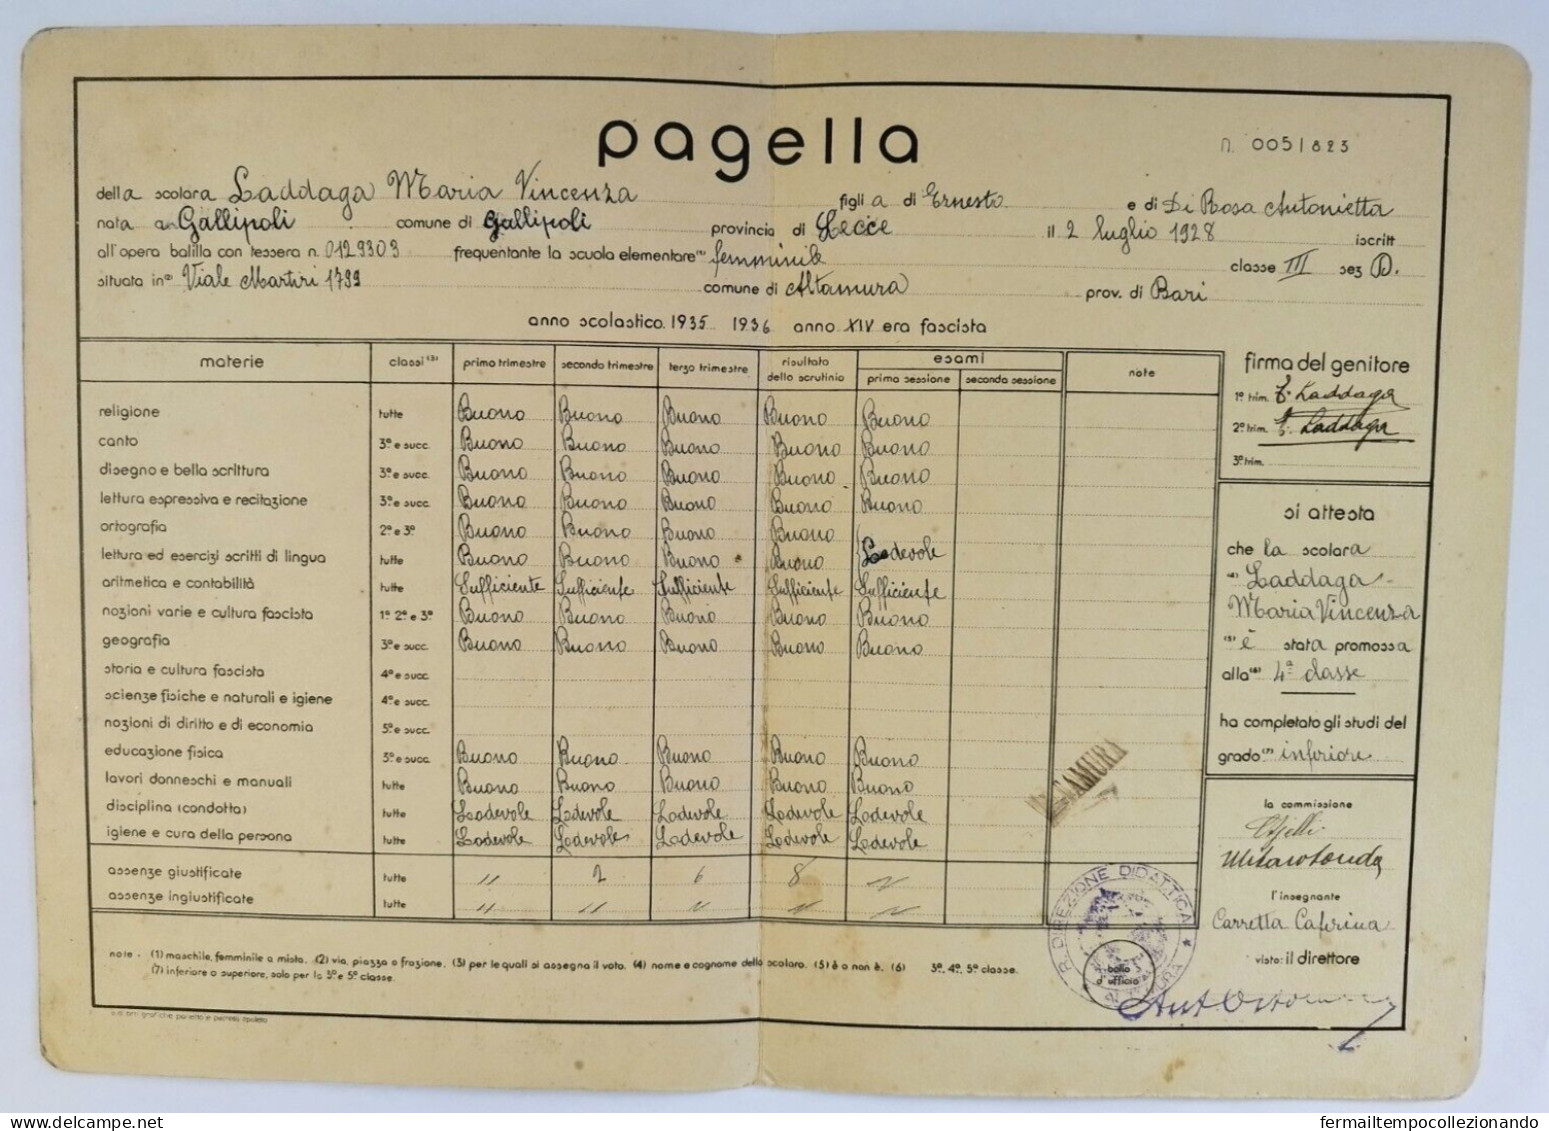 pagella
n. 0051823
della scolara Laddaga Maria Vincenza figlia di Ernesto e di Di Rosa Antonietta
nata a Gallipoli comune di Gallipoli provincia di Lecce il 2 luglio 1928 iscritt
all'opera balilla con tessera n. 0129303 frequentante la scuola elementare (1) femminile classe III sez D.
situata in (2) Viale Martiri 1799 comune di Altamura prov. di Bari
anno scolastico 1935 1936 anno XIV era fascista
materie classi (3) primo trimestre secondo trimestre terzo trimestre risultato dello scrutinio esami prima sessione seconda sessione note
religione tutte Buono Buono Buono Buono Buono
canto 3ª e succ. Buono Buono Buono Buono Buono
disegno e bella scrittura 3ª e succ. Buono Buono Buono Buono Buono
lettura espressiva e recitazione 3ª e succ. Buono Buono Buono Buono Buono
ortografia 2ª e 3ª Buono Buono Buono Buono
lettura ed esercizi scritti di lingua tutte Buono Buono Buono Buono Lodevole
aritmetica e contabilità tutte Sufficiente Sufficiente Sufficiente Sufficiente Sufficiente
nozioni varie e cultura fascista 1ª 2ª e 3ª Buono Buono Buono Buono Buono
geografia 3ª e succ. Buono Buono Buono Buono Buono
storia e cultura fascista 4ª e succ.
scienze fisiche e naturali e igiene 4ª e succ.
nozioni di diritto e di economia 5ª e succ.
educazione fisica 3ª e succ. Buono Buono Buono Buono Buono
lavori donneschi e manuali tutte Buono Buono Buono Buono Buono
disciplina (condotta) tutte Lodevole Lodevole Lodevole Lodevole Lodevole
igiene e cura della persona tutte Lodevole Lodevole Lodevole Lodevole Lodevole
assenze giustificate tutte " 2 6 8 "
assenze ingiustificate tutte " " " " "
note - (1) maschile, femminile o mista. (2) via, piazza o frazione. (3) per le quali si assegna il voto. (4) nome e cognome dello scolaro. (5) è o non è. (6) 3ª, 4ª, 5ª classe.
(7) inferiore o superiore, solo per la 3ª e 5ª classe.
firma del genitore
1º trim. E. Laddaga
2º trim. E. Laddaga
3º trim.
si attesta
che la scolara
(4) Laddaga
Maria Vincenza
(5) è stata promossa
alla (6) 4ª classe
ha completato gli studi del
grado (7) inferiore
ALTAMURA
la commissione
Mitarotonda
l'insegnante
Carretta Caterina
visto: il direttore
R. DIREZIONE DIDATTICA
bollo
d'ufficio
fermailtempocollezionando